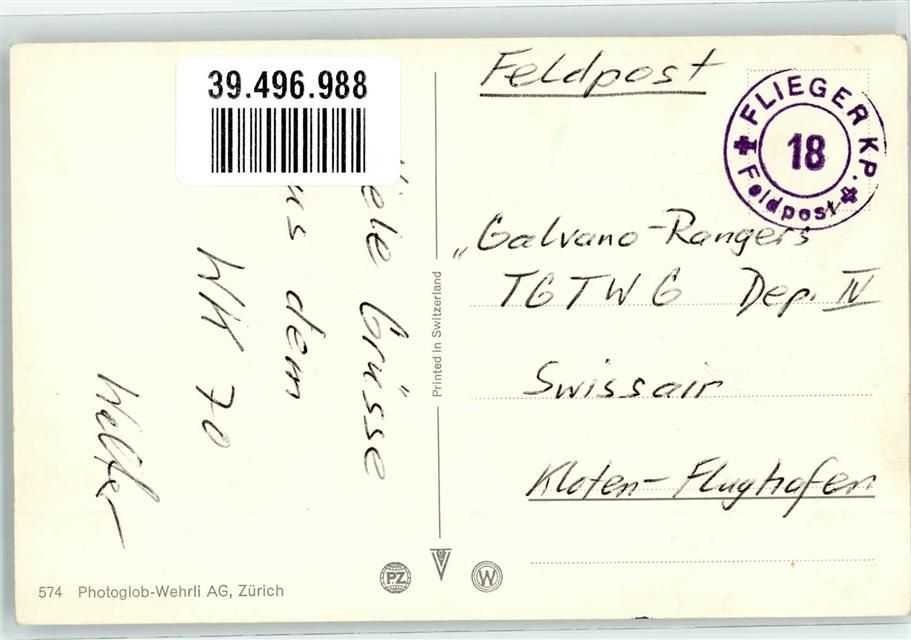 39.496.988
Feldpost
FLIEGER KP.
18
Feldpost
Viele Grüsse
aus dem
WK 70
Walter
„Galvano-Rangers
TGTWG Dep. IV
Swissair
Kloten-Flughafen
Printed in Switzerland
574 Photoglob-Wehrli AG, Zürich
PZ
W